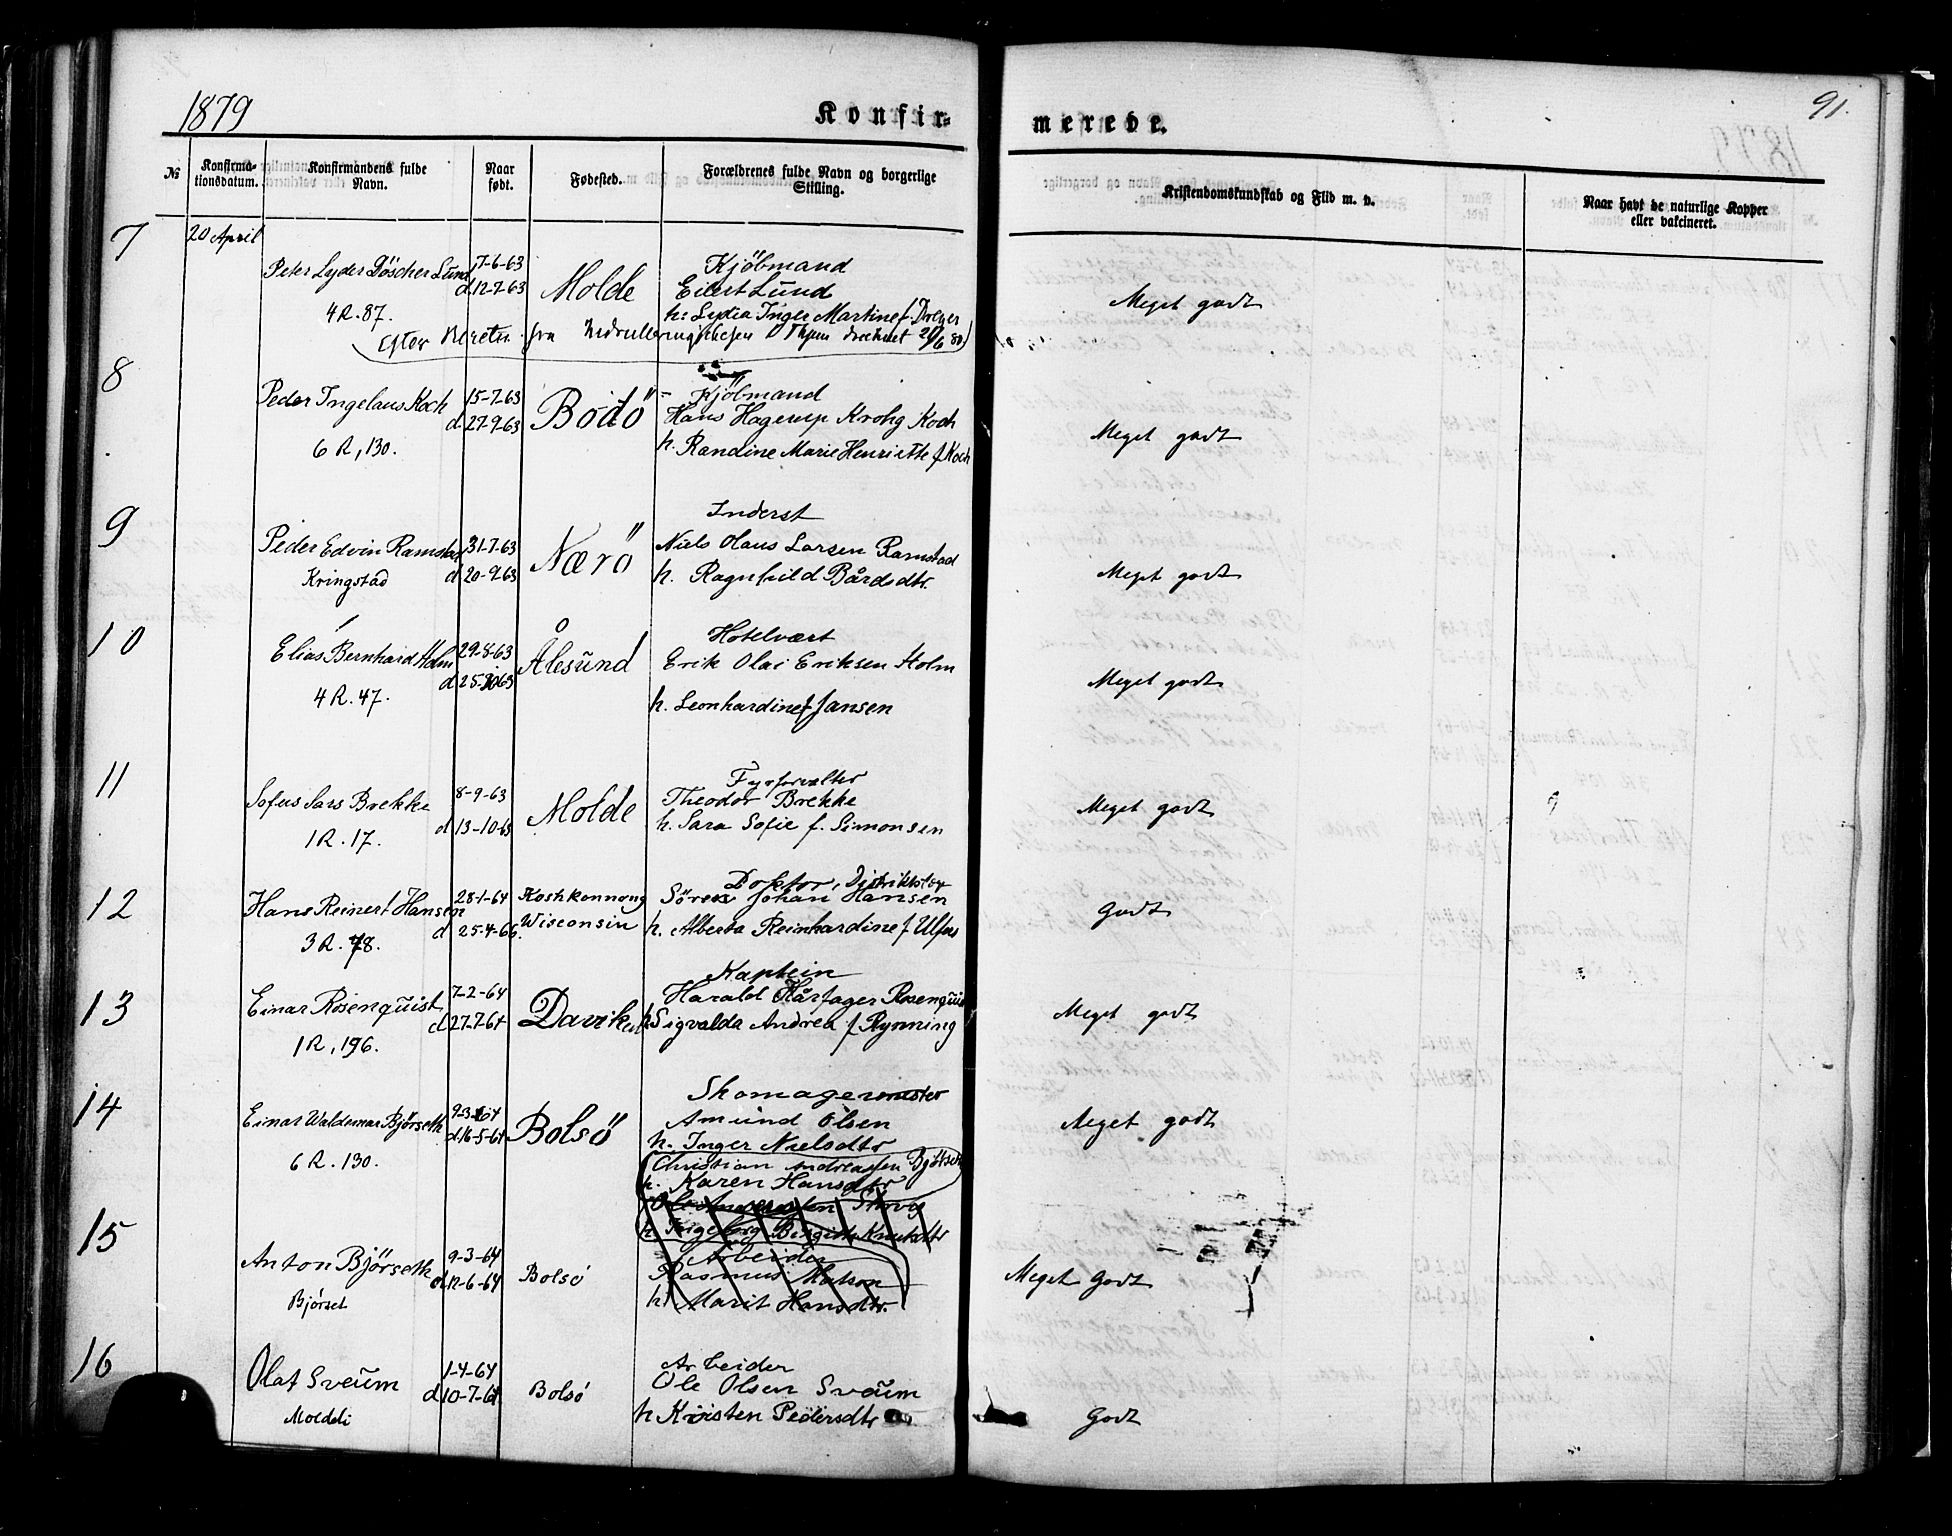 1879
Konfir-
merede.
91.
№
Konfirma-
tionsdatum.
Konfirmandens fulde
Navn.
Naar
født.
Fødested.
Forældrenes fulde Navn og borgerlige
Stilling.
Kristendomskundskab og Flid m. v.
Naar havt de naturlige Kopper
eller vakcineret.
7
20 April
Peter Lyder Döscher Lund
7-6-63
d. 12-7-63
4 R. 87.
Molde
Kjöbmand
Eilert Lund
h: Lydia Inger Martine f. Dreyer
Meget godt
Efter Beretn. fra
8
Peder Ingelaus Koch
15-7-63
d. 27-9-63
6 R, 130.
Bodö
Kjöbmand
Hans Hagerup Krohg Koch
h. Randine Marie Henriette f Koch
Meget godt
9
Peder Edvin Ramstad
31-7-63
d 20-9-63
Kringstad
Nærö
Inderst
Niels Olaus Larsen Ramstad
h. Ragnhild Bårdsdtr.
Meget godt
10
Elias Bernhard Holm
29-8-63
d 25-10-63
4 R. 47.
Ålesund
Hotelvært
Erik Olai Eriksen Holm
h. Leonhardine f Jansen
Meget godt
11
Sofus Sars Brekke
8-9-63
d 13-10-63
1 R. 17.
Molde
Fyrforvalter
Theodor Brekke
h. Sara Sofie f. Simonsen
Meget godt
12
Hans Reinert Hansen
28-1-64
d 25-4-66.
3 R. 78.
Koshkonnong
Wisconsin
Doktor, Distriktslæ
Sören Johan Hansen
h. Alberta Reinhardine f
Godt
13
Einar Rosenquist
7-2-64
d 27-7-64
1 R, 196.
Daviken
Kaptein
Harald Hårfager Rosenquist
h Sigvalda Andrea f Rynning
Meget godt
14
Einar Waldemar Bjørseth
9-3-64
d. 16-5-64
6 R. 130.
Bolsö
Skomagermester
Amund Olsen
h. Inger Nielsdtr
Meget godt
Christian Andreassen Bjørset
h. Karen Hansdtr
h Ingeborg Birgitte Knutsdtr
15
Anton Bjørseth
9-3-64
d 12-6-64
Bjørset
Bolsö
Arbeider
Rasmus
h. Marit Hansdtr.
Meget Godt
16
Olaf Sveum
1-4-64
d 10-7-64
Moldeli
Bolsö
Arbeider
Ole Olsen Sveum
h Kristen Pedersdtr
Godt